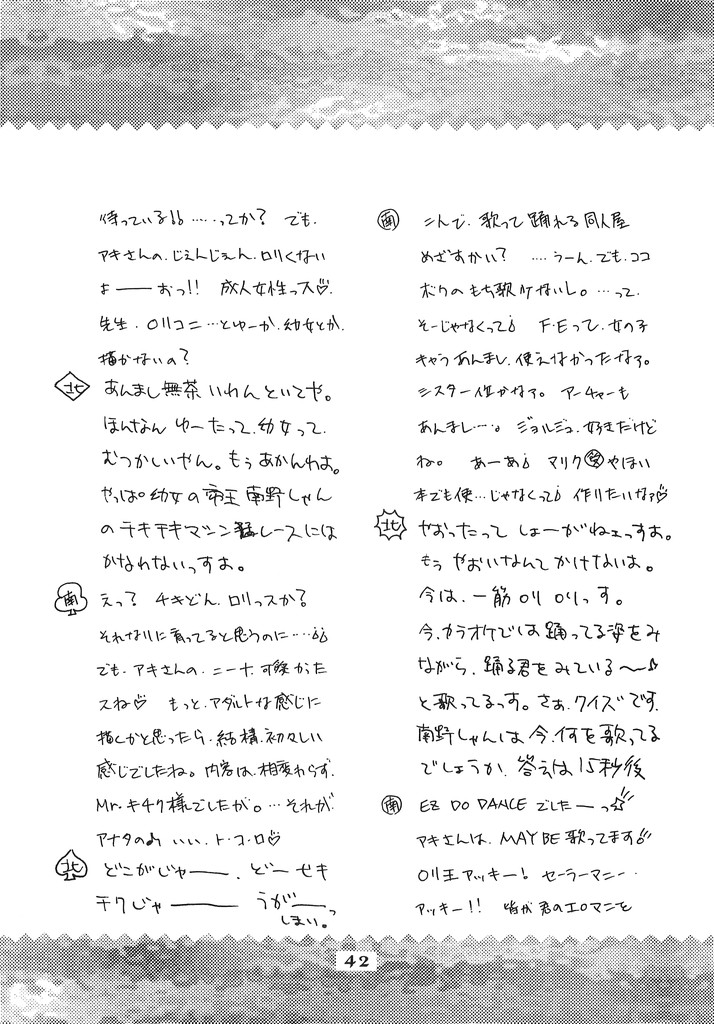 南 ンで、歌って踊れる同人屋
めざすかい? ‥‥うーん、でも、ココ
ボクのもち歌ゲないし。…って、
そーじゃなくって♪ F・Eって、女の子
キャラあんまし、使えなかったなァ。
シスター位かなァ。アーチャーも
あんまし‥‥。ジョルジュ、好きだけど
ね。あーあ♪ マリク受やほい
本でも使…じゃなくって♪ 作りたいなァ♡
北 やおったって しょーがねェっすよ。
もぅ やおいなんて かけないよ。
今は、一筋 ロリ ロリっす。
今、カラオケでは 踊ってる姿をみ
ながら、踊る君をみている〜♪
と歌ってるっす。さぁ、クイズです、
南野しゃんは、今、何を歌ってる
でしょうか、答えは15秒後
南 EZ DO DANCE でしたーっ☆!!
アキさんは、MAYBE 歌ってます!!
ロリ王アッキー! セーラーマニー・
アッキー!! 皆が君のエロマニを
待っている!! ‥‥ってか? でも、
アキさんの、じぇんじぇん、ロリくない
よ――おっ!! 成人女性っス♡、
先生、ロリコニ…とゆーか、幼女とか、
描かないの?
北 あんまし無茶 いわんといてや。
ほんなん ゆーたって、幼女って、
むつかしいやん。もぅ あかんわぁ。
やっぱ 幼女の帝王 南野しゃん
のチキチキマシン猛レースには
かなわないっすよ。
南 えっ? チキどん、ロリっスか?
それなりに育ってると思うのに‥‥♪♪
でも、アキさんの、ニーナ、可愛かった
スね♡ もっと、アダルトな感じに
描くかと思ったら、結構、初々しい
感じでしたね。内容は、相変わらず、
Mr.キチク様でしたが。…それが、
アナタのみ いい、ト・コ・ロ♡
北 どこがじゃ――、どーせキ
チクじゃ―― うが――っ
しまい。
42